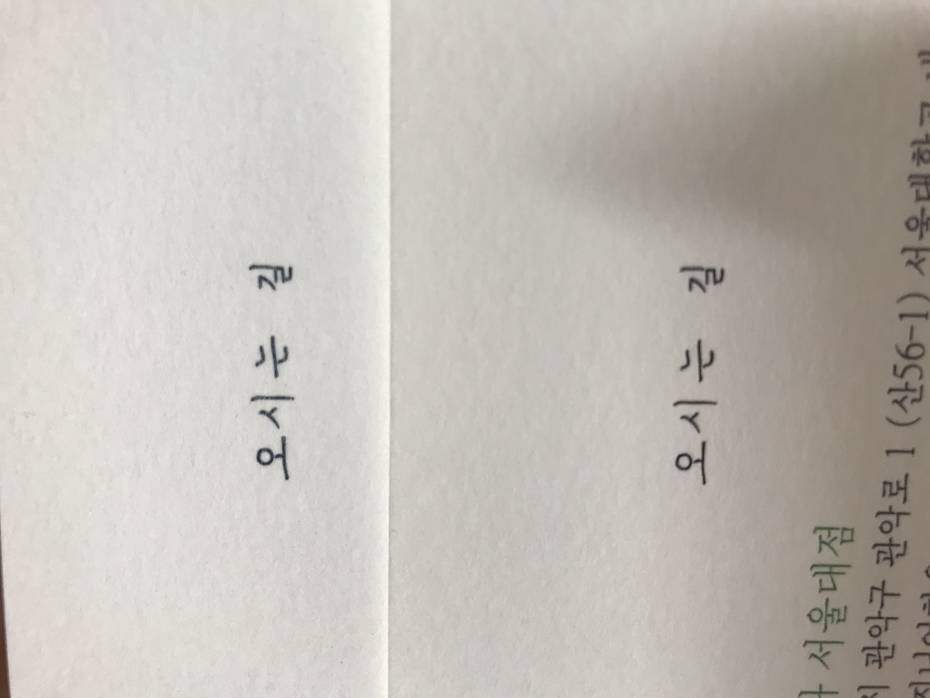 오시는 길
오시는 길
서울대점
관악구 관악로 1 (산56-1) 서울대학교